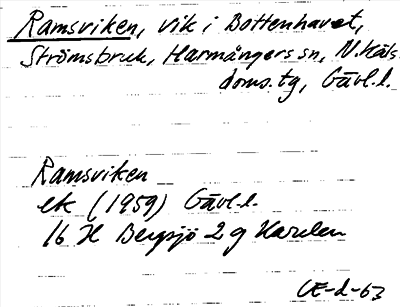 Ramsviken, vik i Bottenhavet,
Strömsbruk, Harmångers sn, N. Häls.
doms. tg, Gävl. l.
Ramsviken
ek (1959) Gävl. l.
16 H Bergsjö 2 g Haralen
CE-d-63